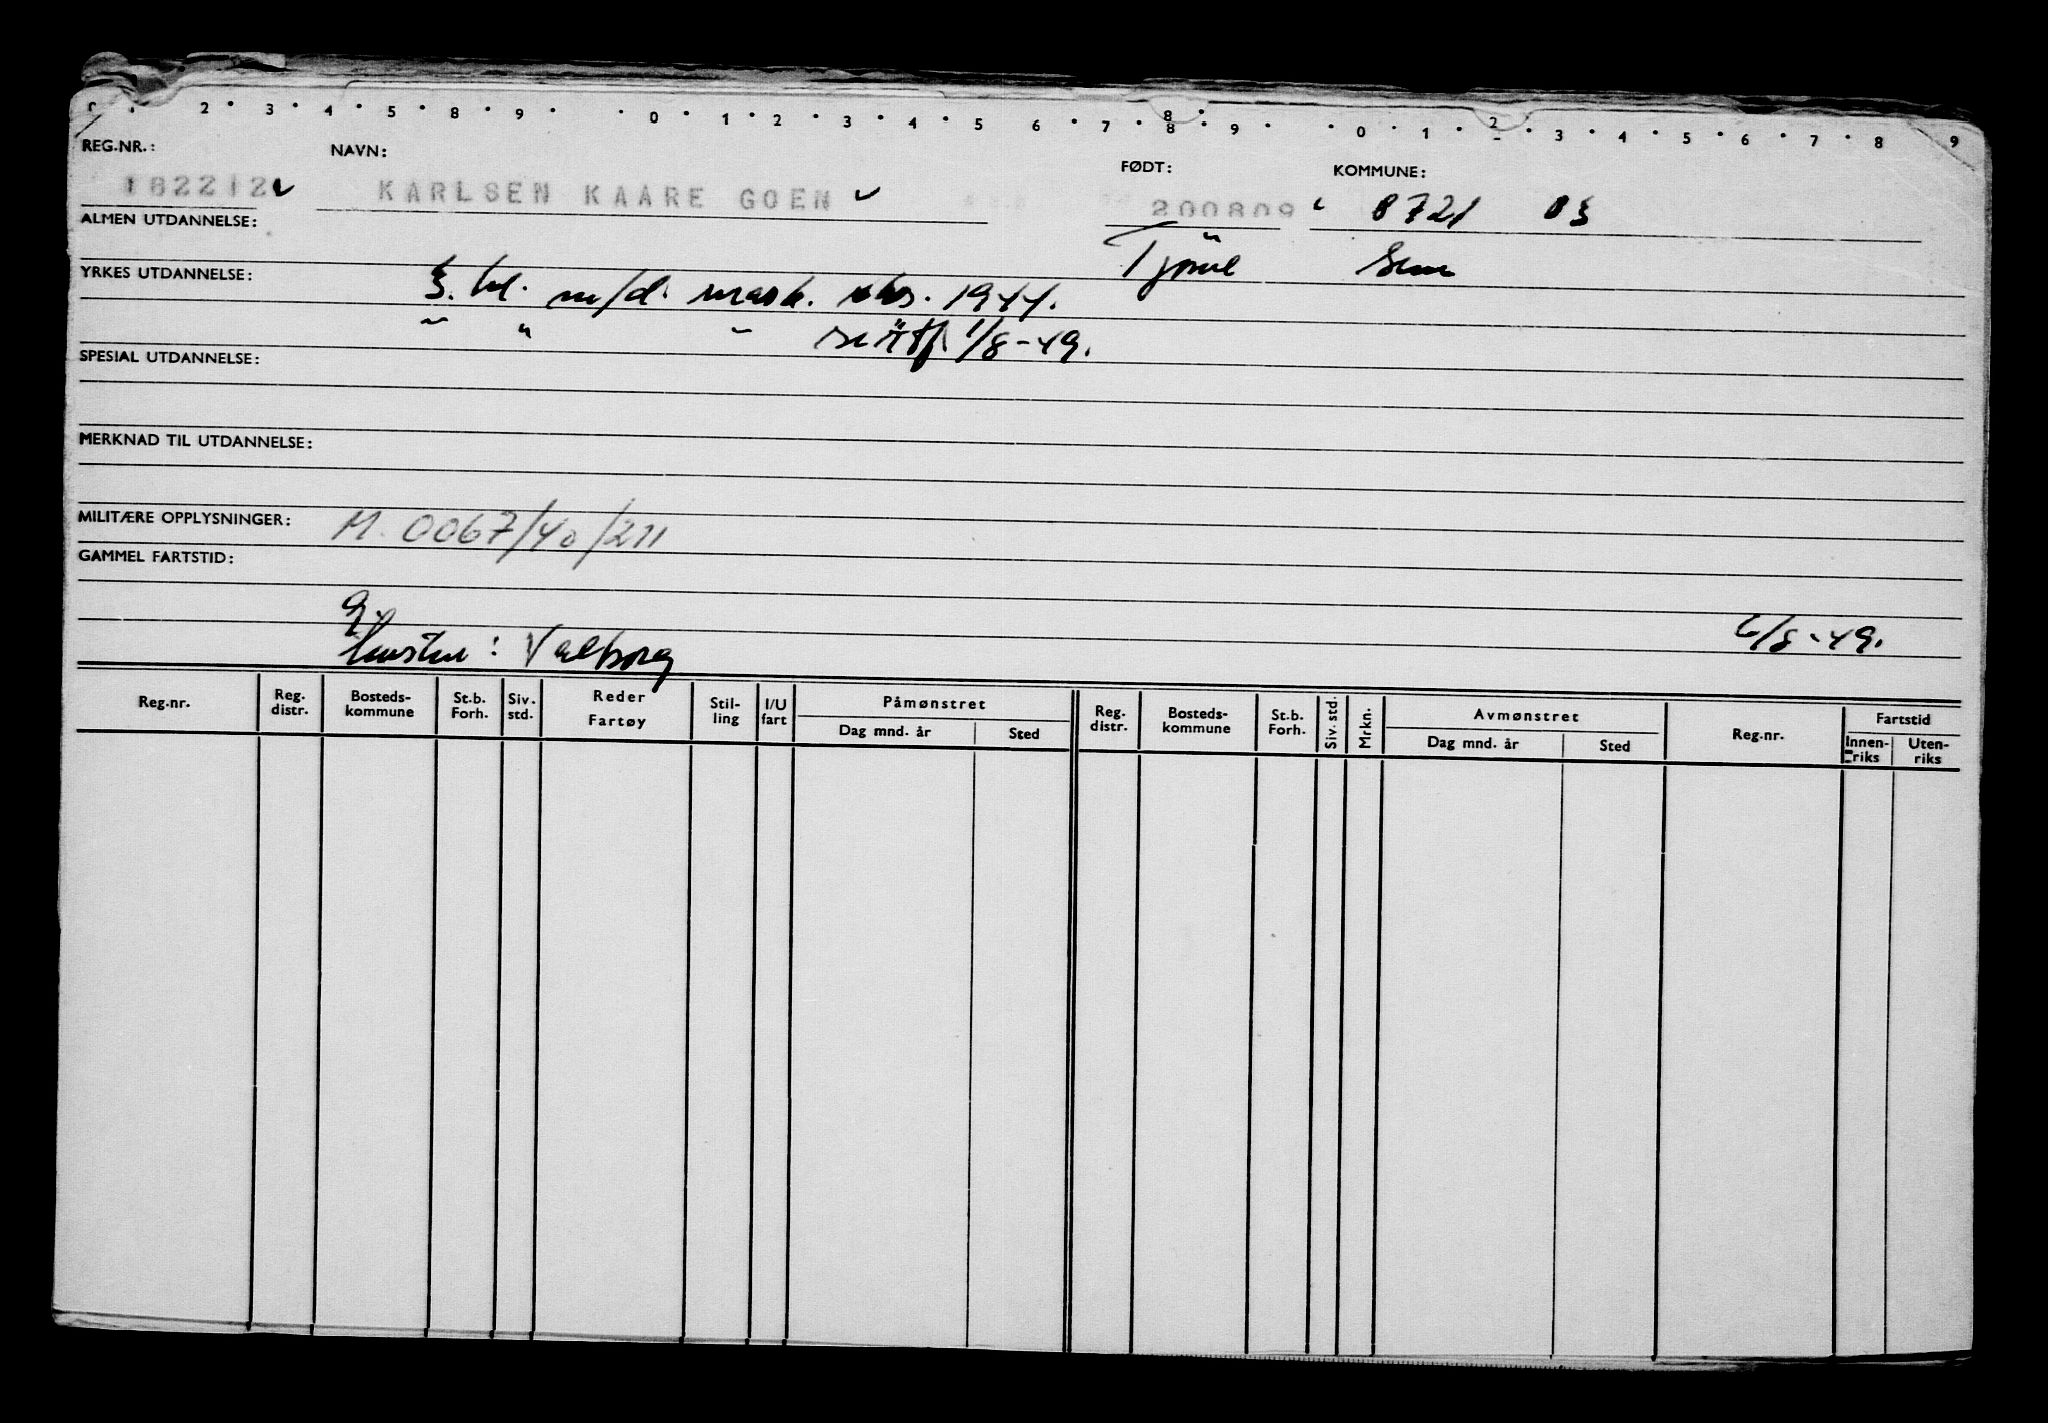 2 3 4 5 8 9 0 1 2 3 4 5 6 7 8 8 9 0 1 2 3 4 5 6 7 8 9
REG.NR.: NAVN: FØDT: KOMMUNE:
182212 KARLSEN KAARE GOEN 200809 0721 03
ALMEN UTDANNELSE: Sem
YRKES UTDANNELSE: 3. kl. m/d. mask. 1944.
" " " sertf. 1/8-49.
SPESIAL UTDANNELSE:
MERKNAD TIL UTDANNELSE:
MILITÆRE OPPLYSNINGER: M. 0067/40/211
GAMMEL FARTSTID:
g.
Hustru: Valborg 6/8-49.
Reg.nr. Reg. distr. Bosteds-kommune St.b. Forh. Siv. std. Reder Fartøy Stil-ling I/U fart Påmønstret Dag mnd. år Sted Reg. distr. Bosteds-kommune St.b. Forh. Siv. std. Mrkn. Avmønstret Dag mnd. år Sted Reg.nr. Fartstid Innen-riks Uten-riks